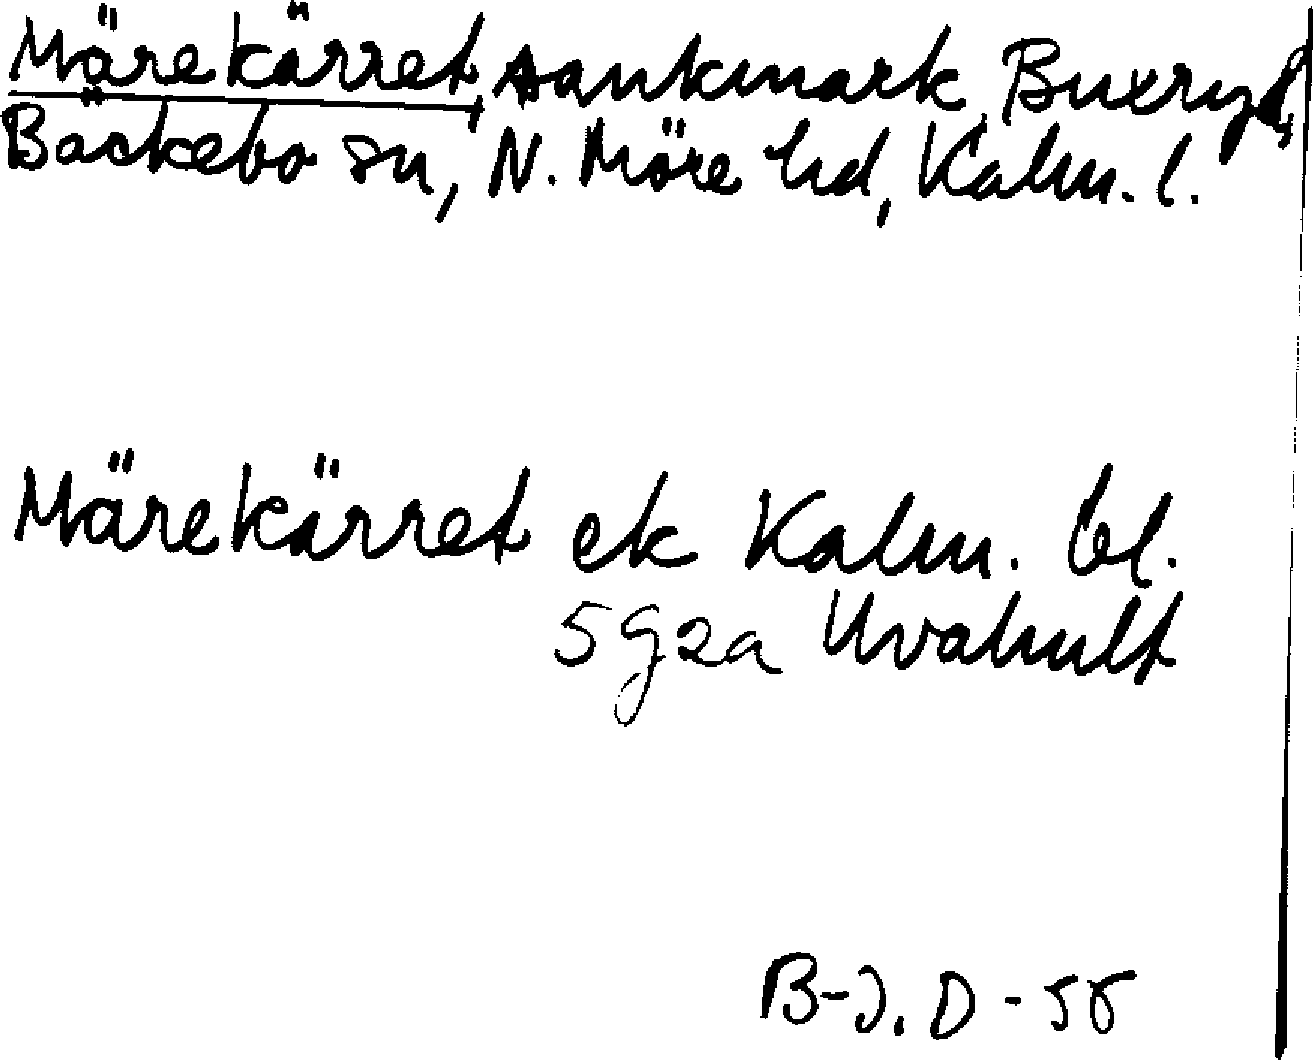 Märekärret, sankmark, Buxryd,
Bäckebo sn, N. Möre hd, Kalm. l.
Märekärret ek Kalm. bl.
5 g 2a Uvahult
B-J. D - 58